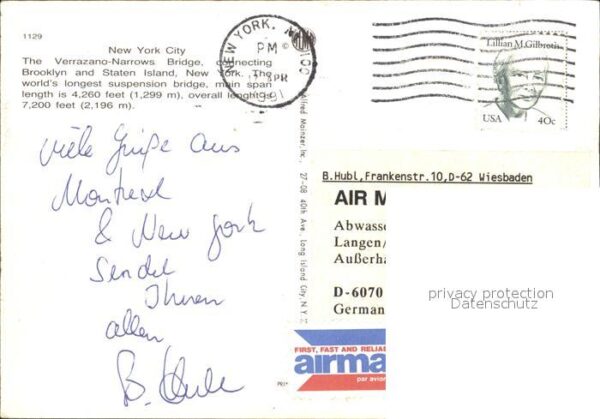 1129
New York City
The Verrazano-Narrows Bridge, connecting
Brooklyn and Staten Island, New York. The
world's longest suspension bridge, main span
length is 4,260 feet (1,299 m), overall lenght is
7,200 feet (2,196 m).
viele Grüße aus
Montreal
& New York
sendet
Ihnen
allen
B. Hubl
Alfred Mainzer, Inc., 27-08 40th Ave., Long Island City, N.Y.
NEW YORK, N
100
PM
APR
1991
Lillian M. Gilbreth
USA 40c
B.Hubl,Frankenstr.10,D-62 Wiesbaden
AIR M
Abwasse
Langen/
Außerha
D-6070
German
privacy protection
Datenschutz
FIRST, FAST AND RELIA
airma
par avio